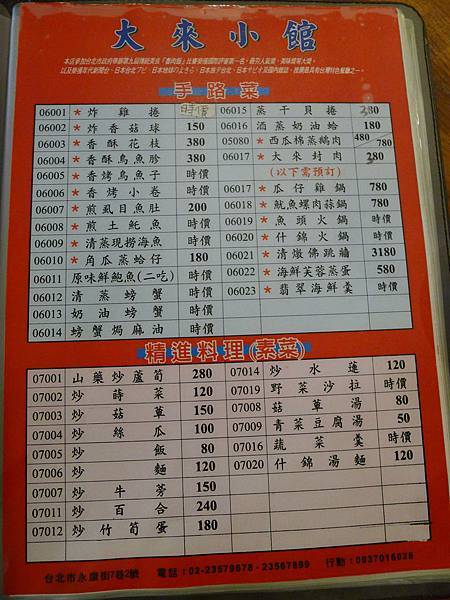 大來小館
手路菜
06001 * 炸雞捲 時價
06002 * 炸香菇球 150
06003 * 香酥花枝 380
06004 * 香酥烏魚胗 380
06005 * 香烤烏魚子 時價
06006 * 香烤小卷 時價
06007 * 煎虱目魚肚 200
06008 * 煎土魠魚 時價
06009 * 清蒸現撈海魚 時價
06010 * 角瓜蒸蛤仔 180
06011 原味鮮鮑魚(二吃) 時價
06012 清蒸螃蟹 時價
06013 奶油螃蟹 時價
06014 螃蟹焗麻油 時價
06015 蒸干貝捲
06016 酒蒸奶油蛤 180
05080 * 西瓜棉蒸鵝肉 480 780
06017 * 大來封肉 280
(以下需預訂)
06017 * 瓜仔雞鍋 780
06018 * 魷魚螺肉蒜鍋 780
06019 * 魚頭火鍋 時價
06020 * 什錦火鍋 時價
06021 * 清燉佛跳牆 3180
06022 * 海鮮芙蓉蒸蛋 580
06023 * 翡翠海鮮羹 時價
精進料理(素菜)
07001 山藥炒蘆筍 280
07002 炒時菜 120
07003 炒菇蕈 150
07004 炒絲瓜 100
07005 炒飯 80
07006 炒麵 120
07007 炒牛蒡 150
07011 炒百合 240
07012 炒竹筍蛋 180
07014 炒水蓮 120
07019 野菜沙拉 時價
07008 菇蕈湯 80
07009 青菜豆腐湯 50
07016 蔬菜羹 時價
07020 什錦湯麵 120
台北市永康街7巷2號 電話:02-23579678・23567899 行動:0937016028